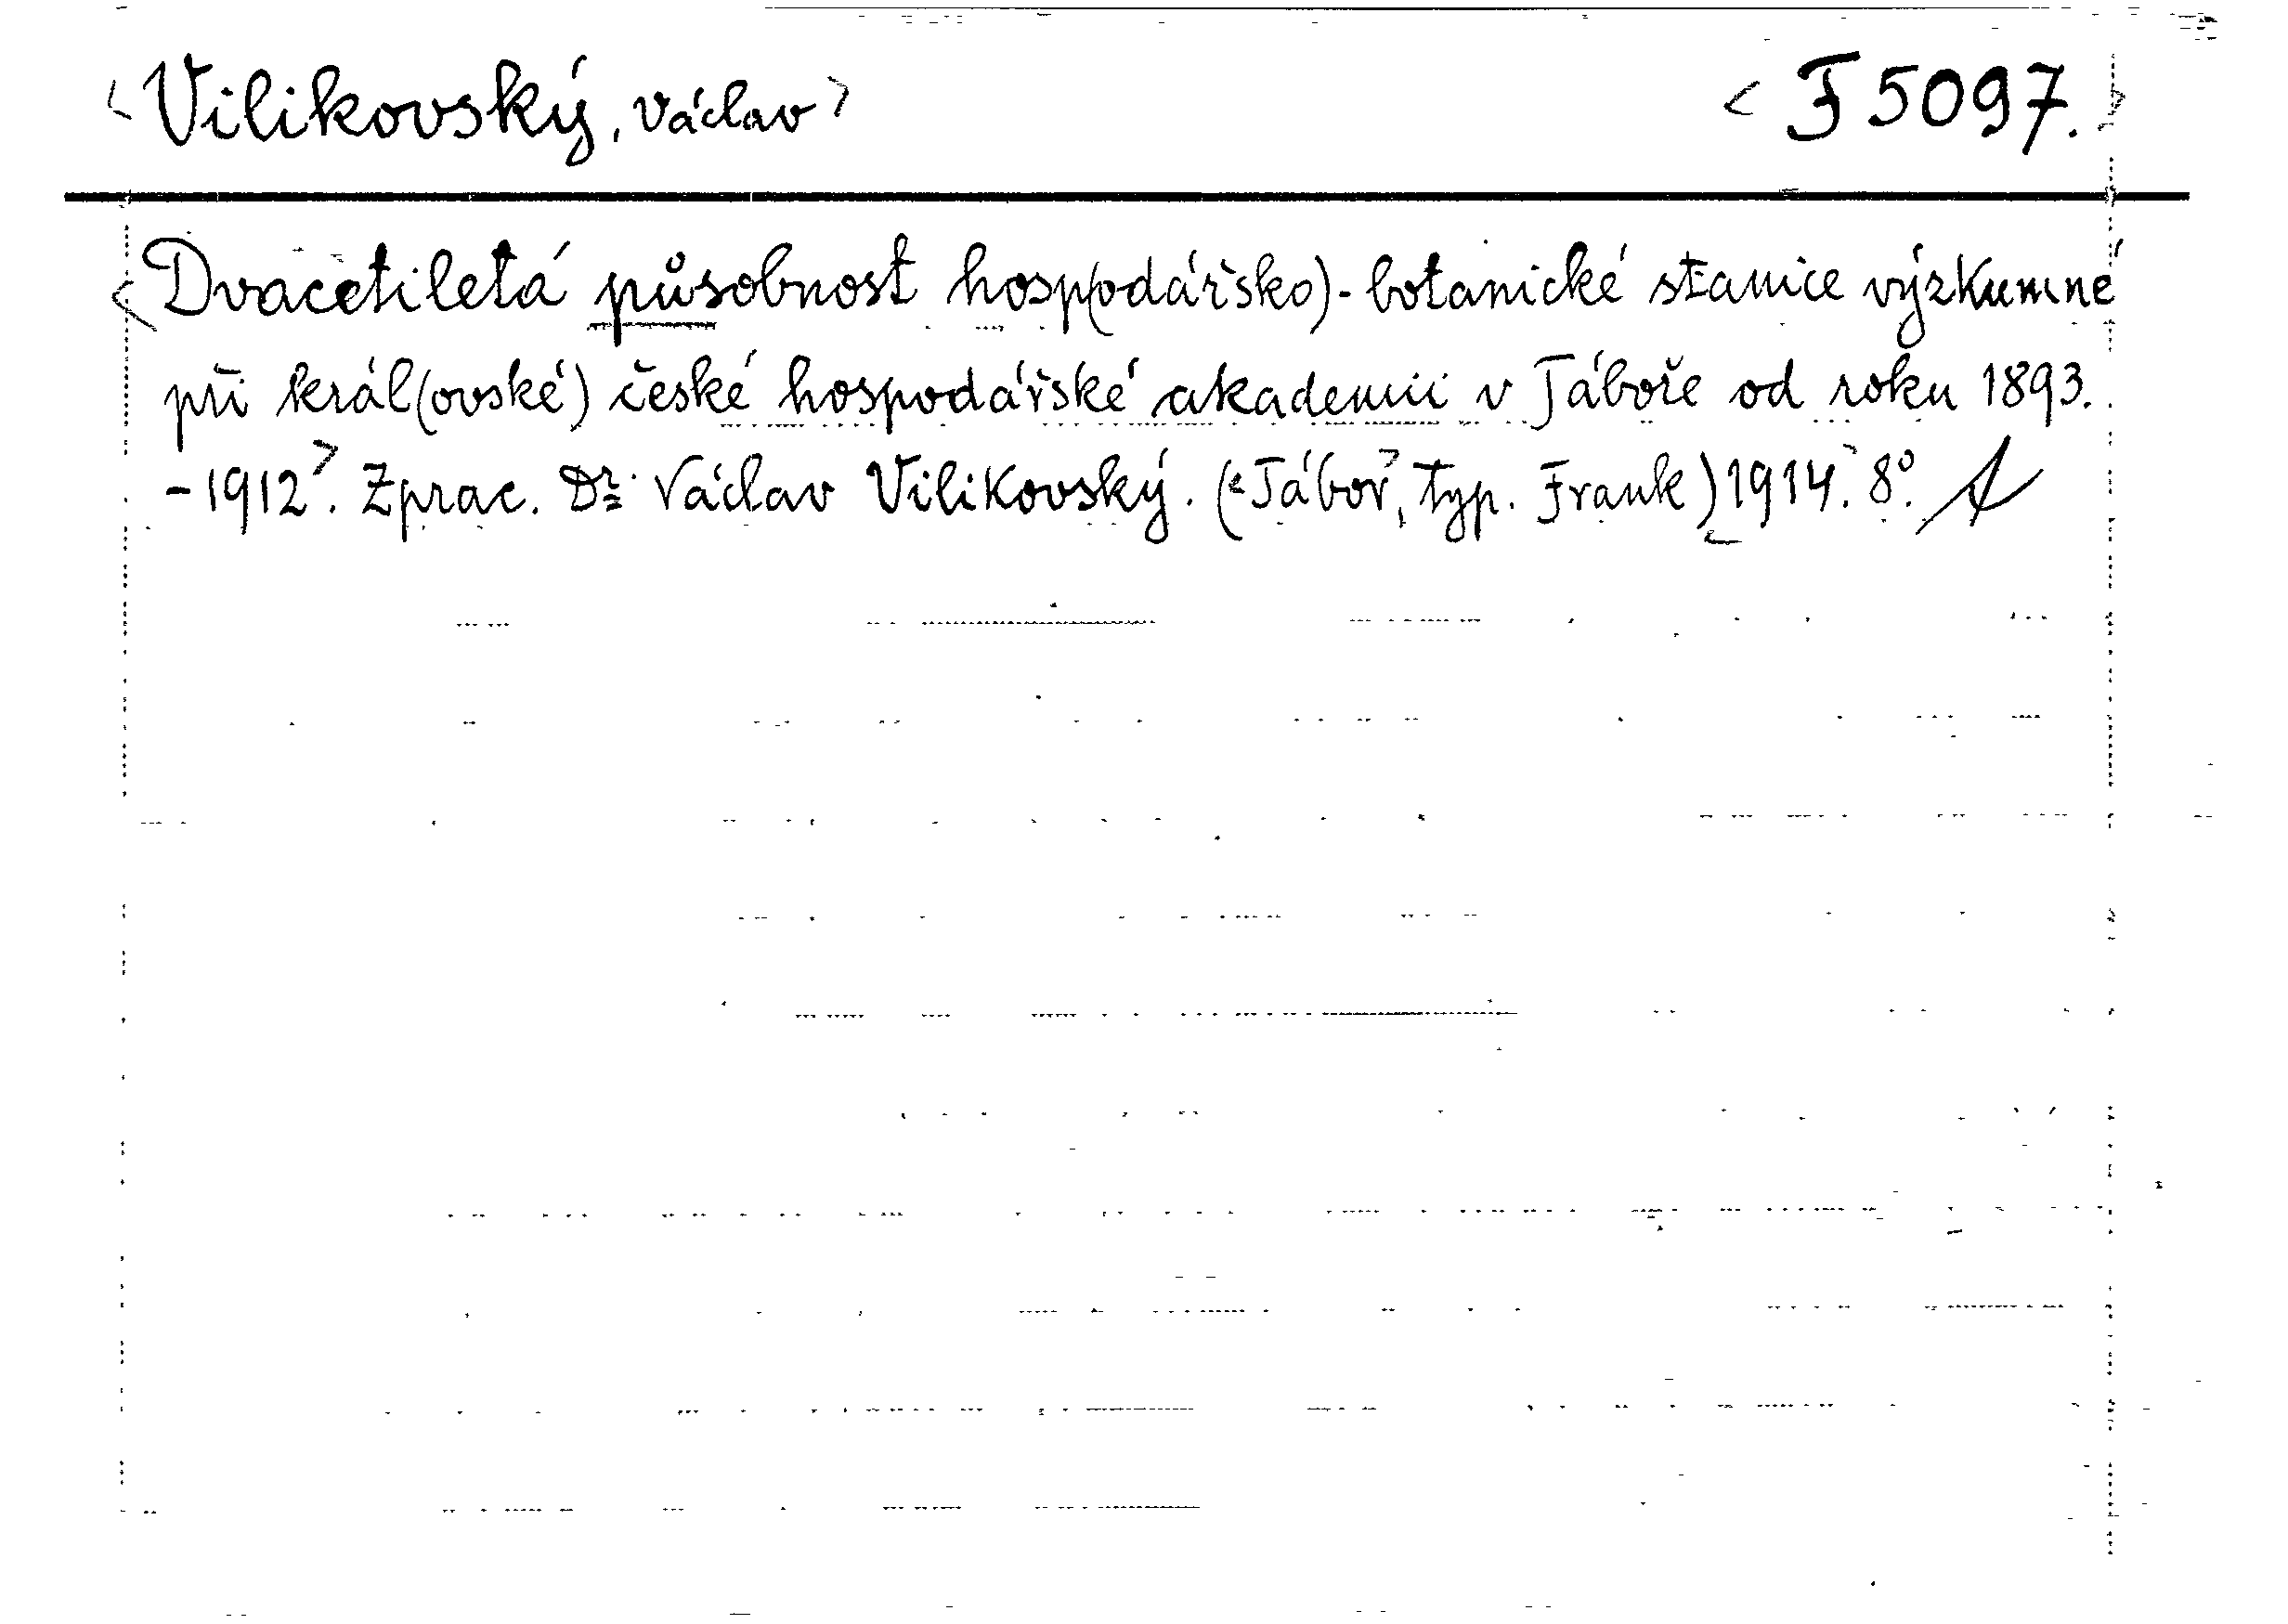 <Vilikovský, Václav> <F 5097.>
<Dvacetiletá působnost hosp(odářsko)-botanické stanice výzkumné
při král(ovské) české hospodářské akademii v Táboře od roku 1893.
-1912>. Zprac. Dr. Václav Vilikovský. (<Tábor>, typ. Frank) 1914. 8°.